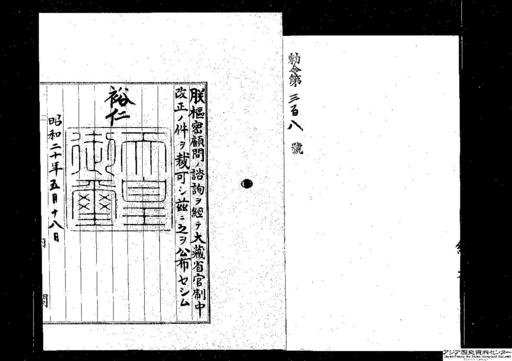 勅令第三百八號
朕樞密顧問ノ諮詢ヲ經テ大藏省官制中
改正ノ件ヲ裁可シ茲ニ之ヲ公布セシム
裕仁
天皇御璽
昭和二十年五月十八日
内閣
アジア歴史資料センター